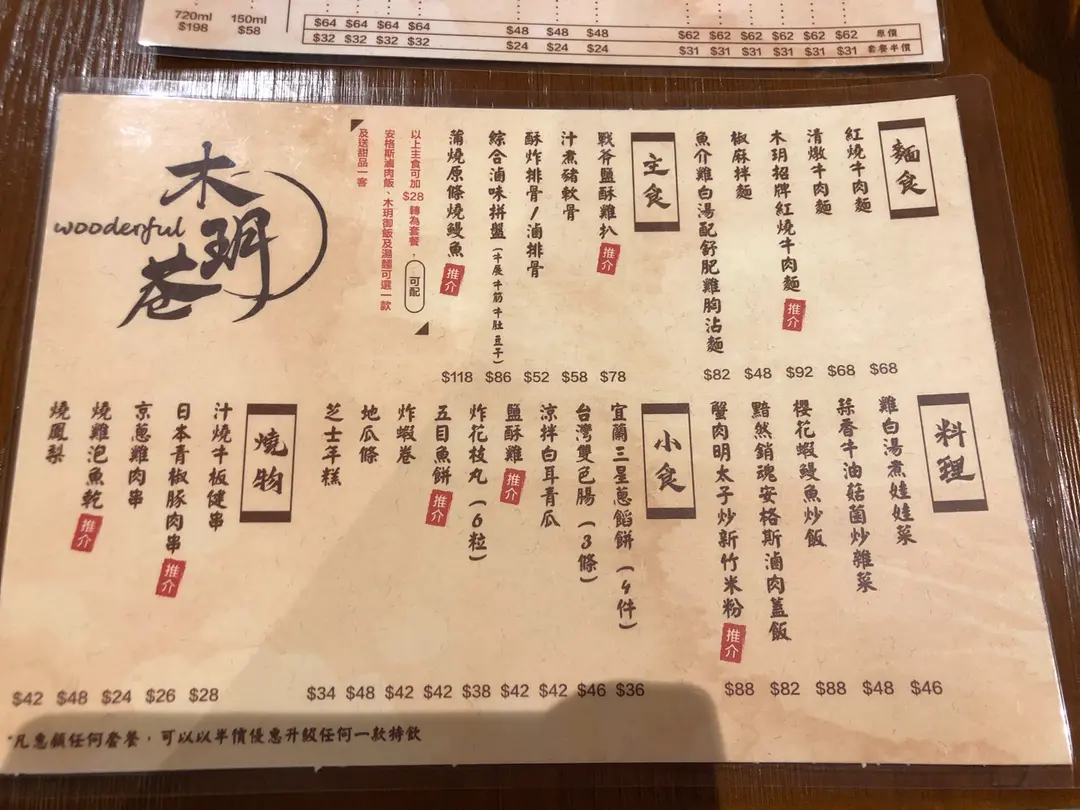 720ml
$198
150ml
$58
$64 $64 $64 $64 $48 $48 $48 $62 $62 $62 $62 $62 $62 原價
$32 $32 $32 $32 $24 $24 $24 $31 $31 $31 $31 $31 $31 套餐半價
木玥巷
wooderful
麵食
紅燒牛肉麵 $68
清燉牛肉麵 $68
木玥招牌紅燒牛肉麵 推介 $92
椒麻拌麵 $48
魚介雞白湯配舒肥雞胸沾麵 $82
主食
戰斧鹽酥雞扒 推介 $78
汁煮豬軟骨 $58
酥炸排骨/滷排骨 $52
綜合滷味拼盤(牛展牛筋牛肚豆干) $86
蒲燒原條燒鰻魚 推介 $118
以上主食可加 $28 轉為套餐,可配
安格斯滷肉飯、木玥御飯及湯麵可選一款
及送甜品一客
料理
雞白湯煮娃娃菜 $46
蒜香牛油菇菌炒雜菜 $48
櫻花蝦鰻魚炒飯 $88
黯然銷魂安格斯滷肉蓋飯 $82
蟹肉明太子炒新竹米粉 推介 $88
小食
宜蘭三星蔥餡餅(4件) $36
台灣雙色腸(3條) $46
涼拌白耳青瓜 $42
鹽酥雞 推介 $42
炸花枝丸(6粒) $38
五目魚餅 推介 $42
炸蝦卷 $42
地瓜條 $48
芝士年糕 $34
燒物
汁燒牛板健串 $28
日本青椒豚肉串 推介 $26
京蔥雞肉串 $24
燒雞泡魚乾 推介 $48
燒鳳梨 $42
*凡惠顧任何套餐,可以以半價優惠升級任何一款特飲